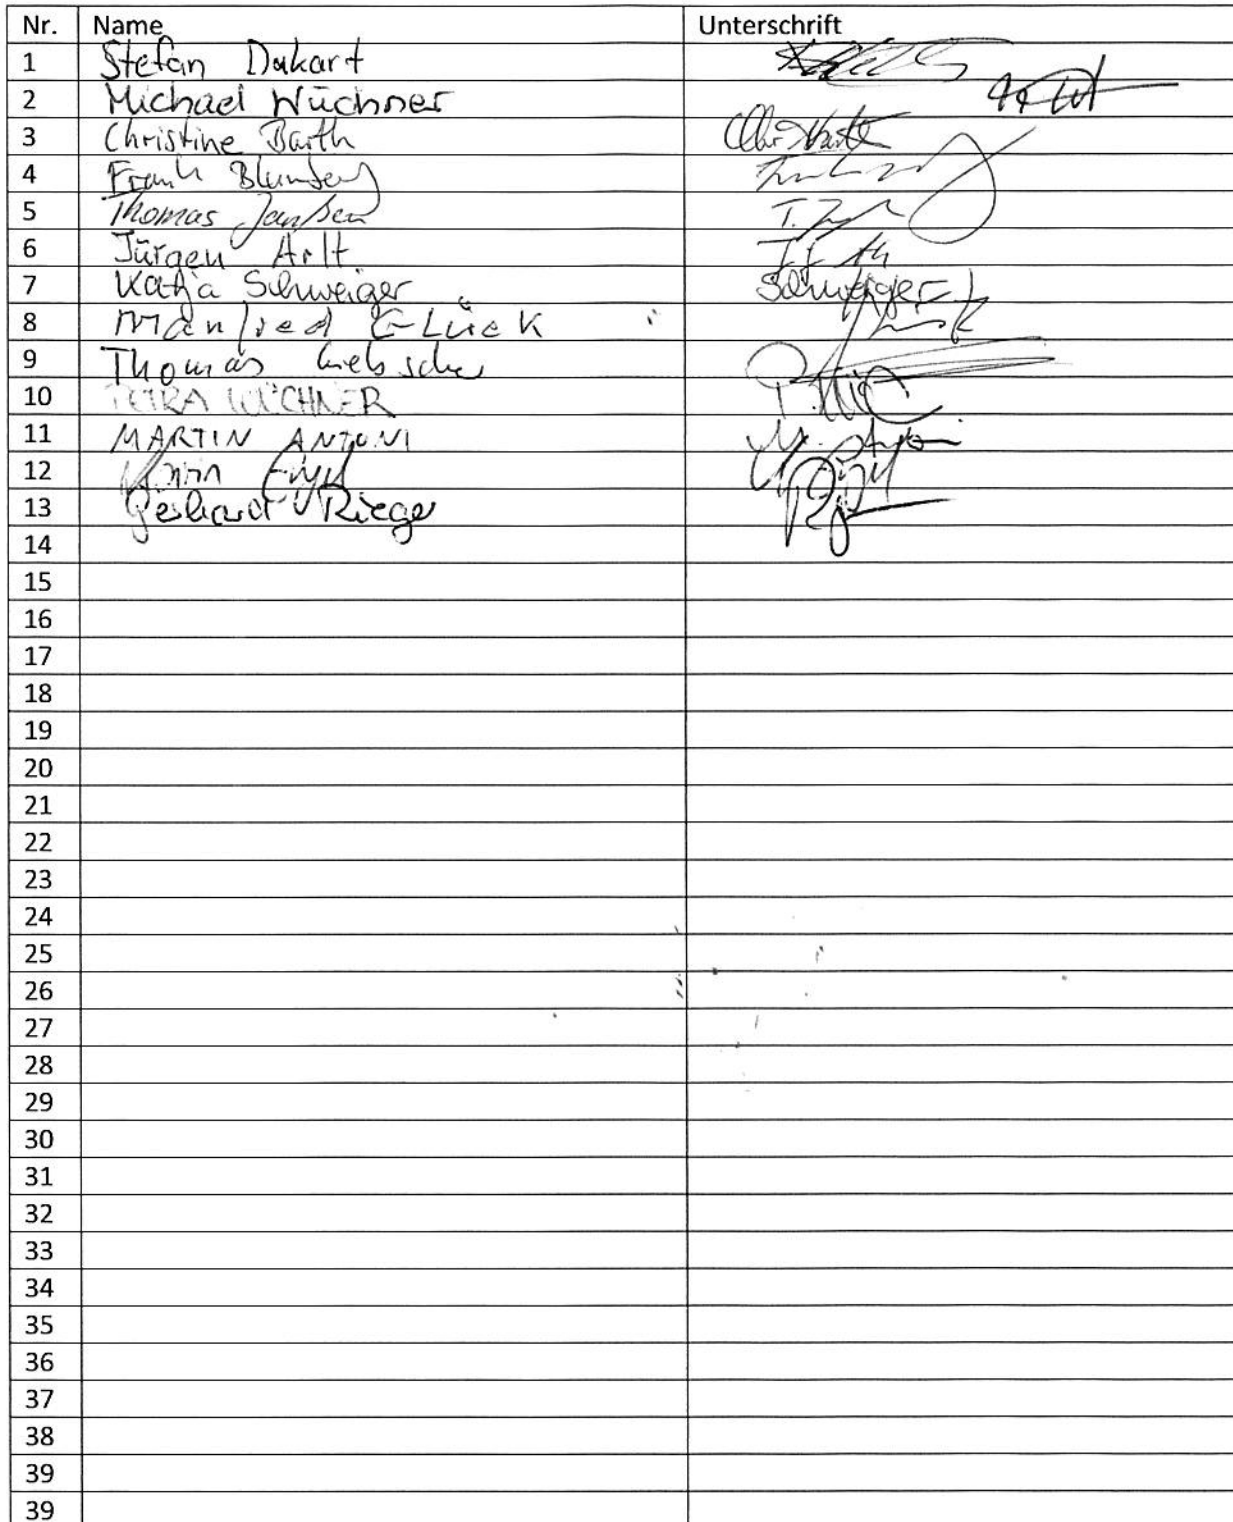 Nr. Name Unterschrift
1 Stefan Dakart
2 Michael Wüchner
3 Christine Barth
4 Frank Blumberg
5 Thomas Janßen T.
6 Jürgen Arlt
7 Katja Schweiger Schweiger
8 Manfred GLück
9 Thomas
10 PETRA WÜCHNER
11 MARTIN ANTONI M. Antoni
12
13 Gerhard Rieger
14
15
16
17
18
19
20
21
22
23
24
25
26
27
28
29
30
31
32
33
34
35
36
37
38
39
39